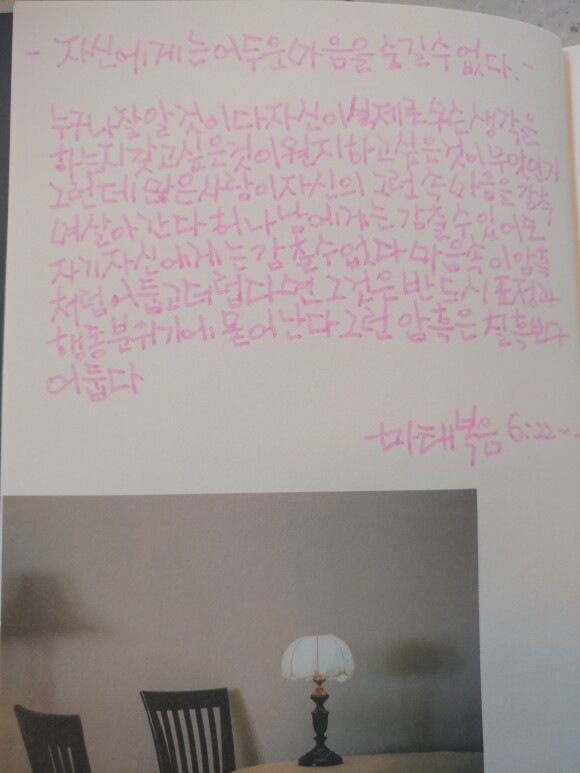 - 자신에게는 어두운 마음을 숨길 수 없다. -
누구나 잘 알 것이다 자신이 실제로 무슨 생각을
하는지 갖고 싶은 것이 뭔지 하고 싶은 것이 무엇인지
그런데 많은 사람이 자신의 그런 속마음을 감추
며 살아간다 허나 남에게는 감출 수 있어도
자기 자신에게는 감출 수 없다 마음속이 암흑
처럼 어둡고 더럽다면 그것은 반드시 표정과
행동 분위기에 묻어난다 그런 암흑은 칠흑보다
어둡다
-마태복음 6:22~